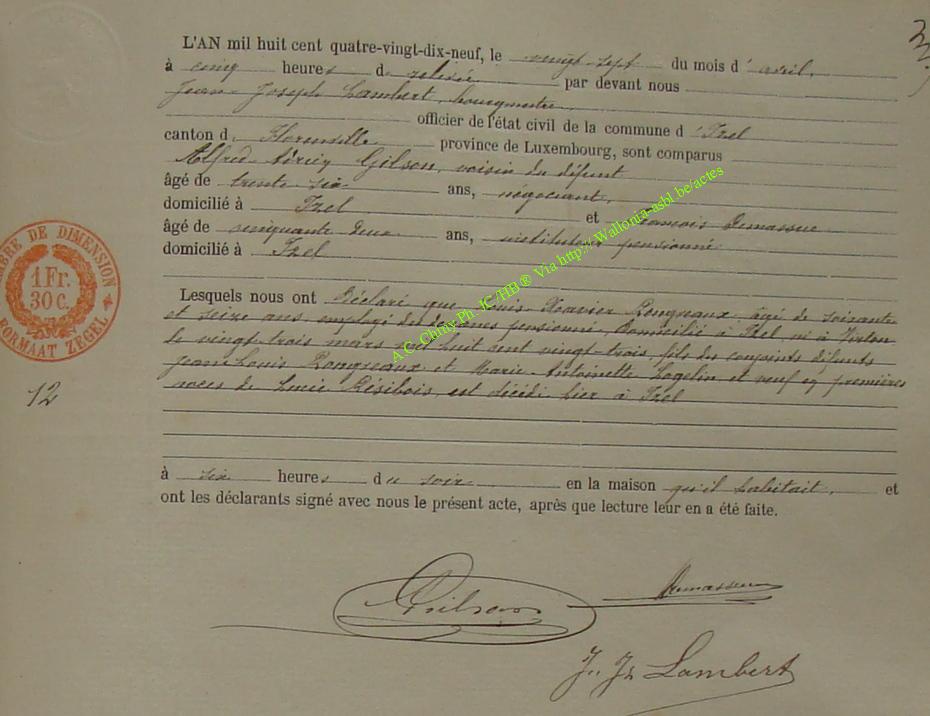 L'AN mil huit cent quatre-vingt-dix-neuf, le vingt-sept du mois d'avril,
à cinq heures d par devant nous
Jean-Joseph Lambert, bourgmestre
officier de l'état civil de la commune d'Izel
canton d Florenville province de Luxembourg, sont comparus
Alfred Gilson, voisin du défunt
âgé de trente six ans, négociant,
domicilié à Izel et François Demasseue
âgé de cinquante deux ans, instituteur pensionné
domicilié à Izel
Lesquels nous ont déclaré que Louis Xavier Rongveaux, âgé de soixante
et seize ans, employé des douanes pensionné, domicilié à Izel, né à Virton
le vingt-trois mars mil huit cent vingt-trois, fils des conjoints défunts
Jean Louis Rongveaux et Marie Antoinette Logelin et veuf en premières
noces de Lucie Résibois, est décédé hier à Izel
à six heures du soir en la maison qu'il habitait, et
ont les déclarants signé avec nous le présent acte, après que lecture leur en a été faite.
Gilson
J. Jh Lambert
TIMBRE DE DIMENSION
1 Fr.
30 C.
FORMAAT ZEGEL
12
A.C. Chiny Ph. JC/HB ® Via http://Wallonia-asbl.be/actes